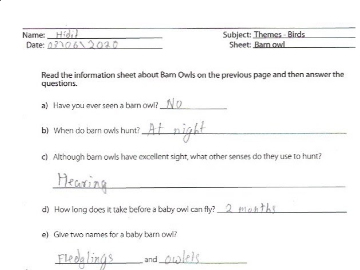 Name: Hidit Subject: Themes - Birds
Date: 03\06\2020 Sheet: Barn owl
Read the information sheet about Barn Owls on the previous page and then answer the
questions.
a) Have you ever seen a barn owl? No
b) When do barn owls hunt? At night
c) Although barn owls have excellent sight, what other senses do they use to hunt?
Hearing
d) How long does it take before a baby owl can fly? 2 months
e) Give two names for a baby barn owl?
Fledglings and owlets